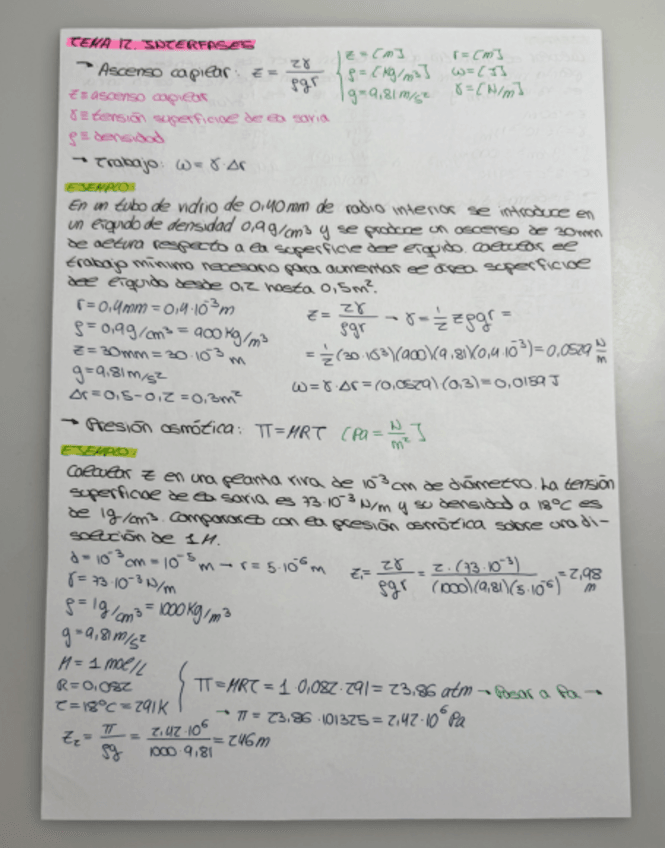 TEMA 12. INTERFASES
→ Ascenso capilar: z = 2γ/ρgr
z = [m] r = [m]
ρ = [Kg/m³] ω = [J]
g = 9,81 m/s² γ = [N/m]
z ≡ ascenso capilar
γ ≡ tensión superficial de la savia
ρ ≡ densidad
→ Trabajo: ω = γ·Δr
EJEMPLO:
En un tubo de vidrio de 0,40 mm de radio interior se introduce en
un líquido de densidad 0,9 g/cm³ y se produce un ascenso de 30mm
de altura respecto a la superficie del líquido. Calcular el
trabajo mínimo necesario para aumentar el área superficial
del líquido desde 0,2 hasta 0,5 m².
r = 0,4mm = 0,4·10⁻³ m
ρ = 0,9 g/cm³ = 900 Kg/m³
z = 30mm = 30·10⁻³ m
g = 9,81 m/s²
Δr = 0,5 - 0,2 = 0,3 m²
z = 2γ/ρgr → γ = 1/2 zρgr =
= 1/2 (30·10⁻³)(900)(9,81)(0,4·10⁻³) = 0,0529 N/m
ω = γ·Δr = (0,0529)(0,3) = 0,0159 J
→ Presión osmótica: Π = MRT [Pa = N/m²]
EJEMPLO:
Calcular z en una planta viva de 10⁻³ cm de diámetro. La tensión
superficial de la savia es 73·10⁻³ N/m y su densidad a 18°C es
de 1g/cm³. Compararlo con la presión osmótica sobre una di-
solución de 1 M.
d = 10⁻³ cm = 10⁻⁵ m → r = 5·10⁻⁶ m
γ = 73·10⁻³ N/m
ρ = 1g/cm³ = 1000 Kg/m³
g = 9,81 m/s²
z₁ = 2γ/ρgr = 2·(73·10⁻³)/(1000)(9,81)(5·10⁻⁶) = 2,98 m
M = 1 mol/L
R = 0,082
T = 18°C = 291K
Π = MRT = 1 0,082·291 = 23,86 atm → Pasar a Pa →
→ Π = 23,86·101325 = 2,42·10⁶ Pa
z₂ = Π/ρg = 2,42·10⁶/1000·9,81 = 246 m